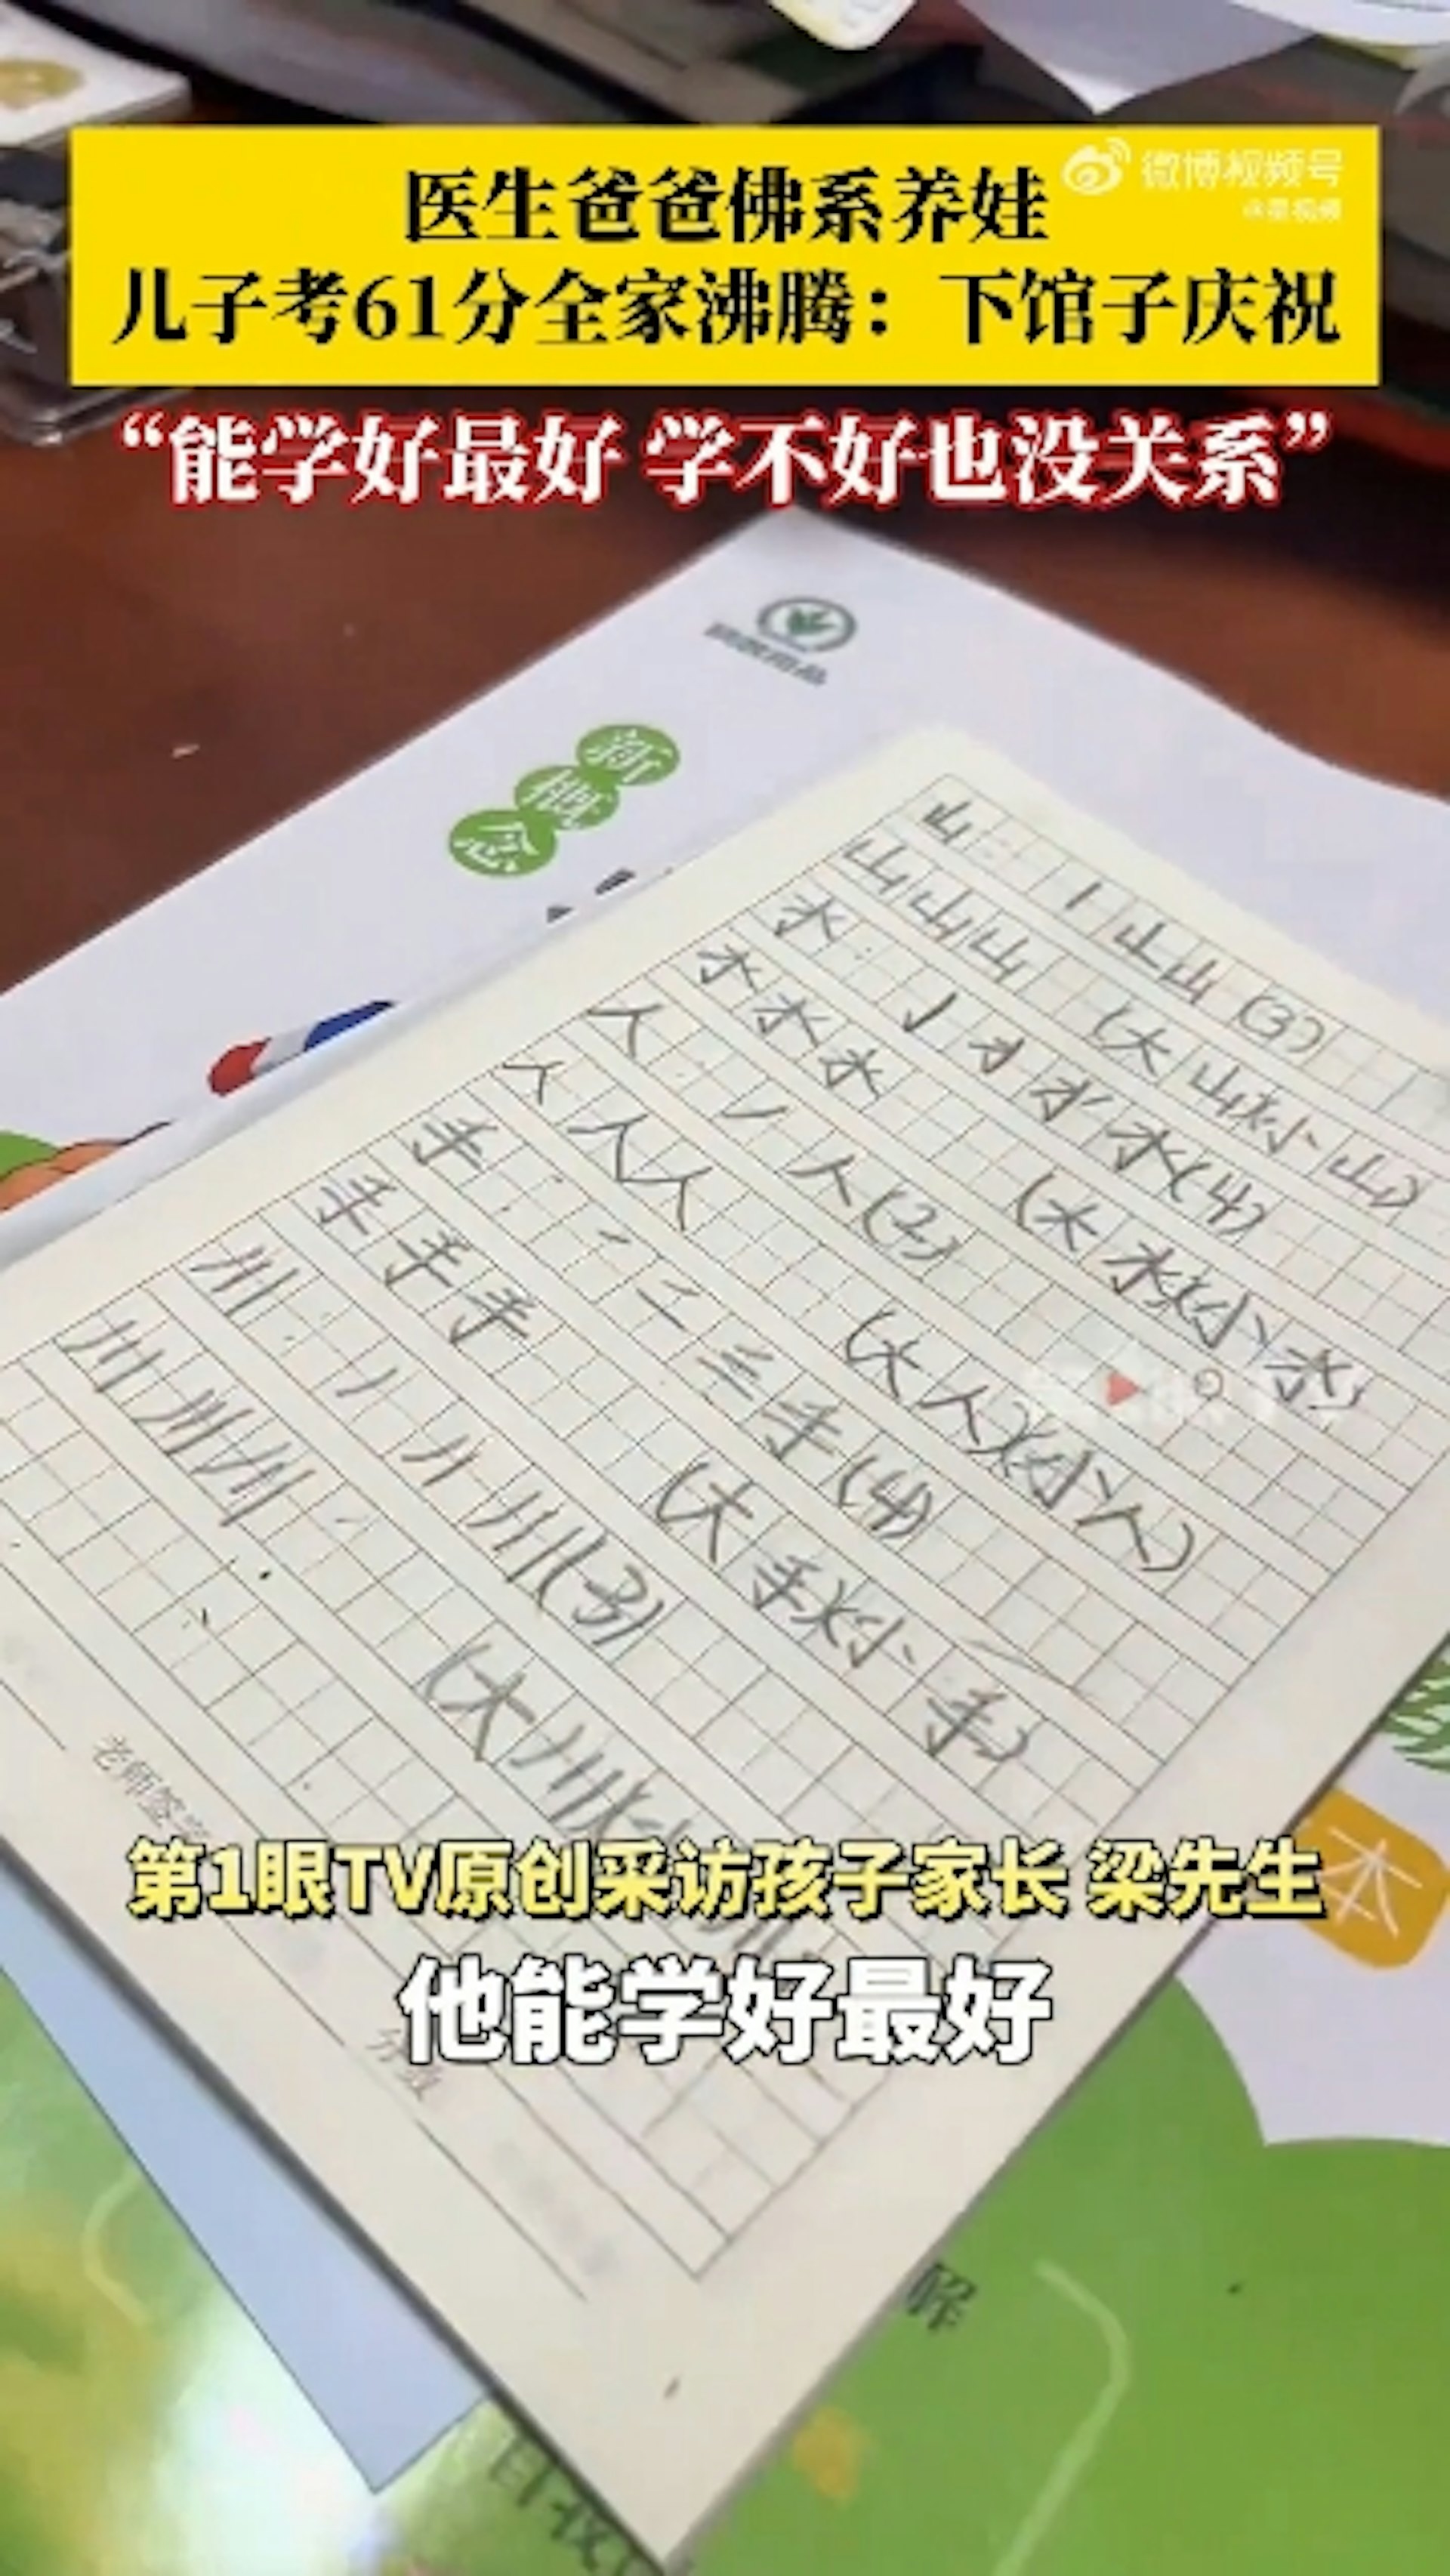 微博视频号
医生爸爸佛系养娃
儿子考61分全家沸腾：下馆子庆祝
“能学好最好 学不好也没关系”
新概念
山：丨山山(3)
山山山(大山)(小山)
水：亅水(4)
水水水(大水)(小水)
人：丿人(2)
人人人(大人)(小人)
手：手(4)
手手手(大手)(小手)
川：丿川(3)
川川川(大川)
老师签
本
第1眼TV原创采访孩子家长 梁先生
他能学好最好
分数
解